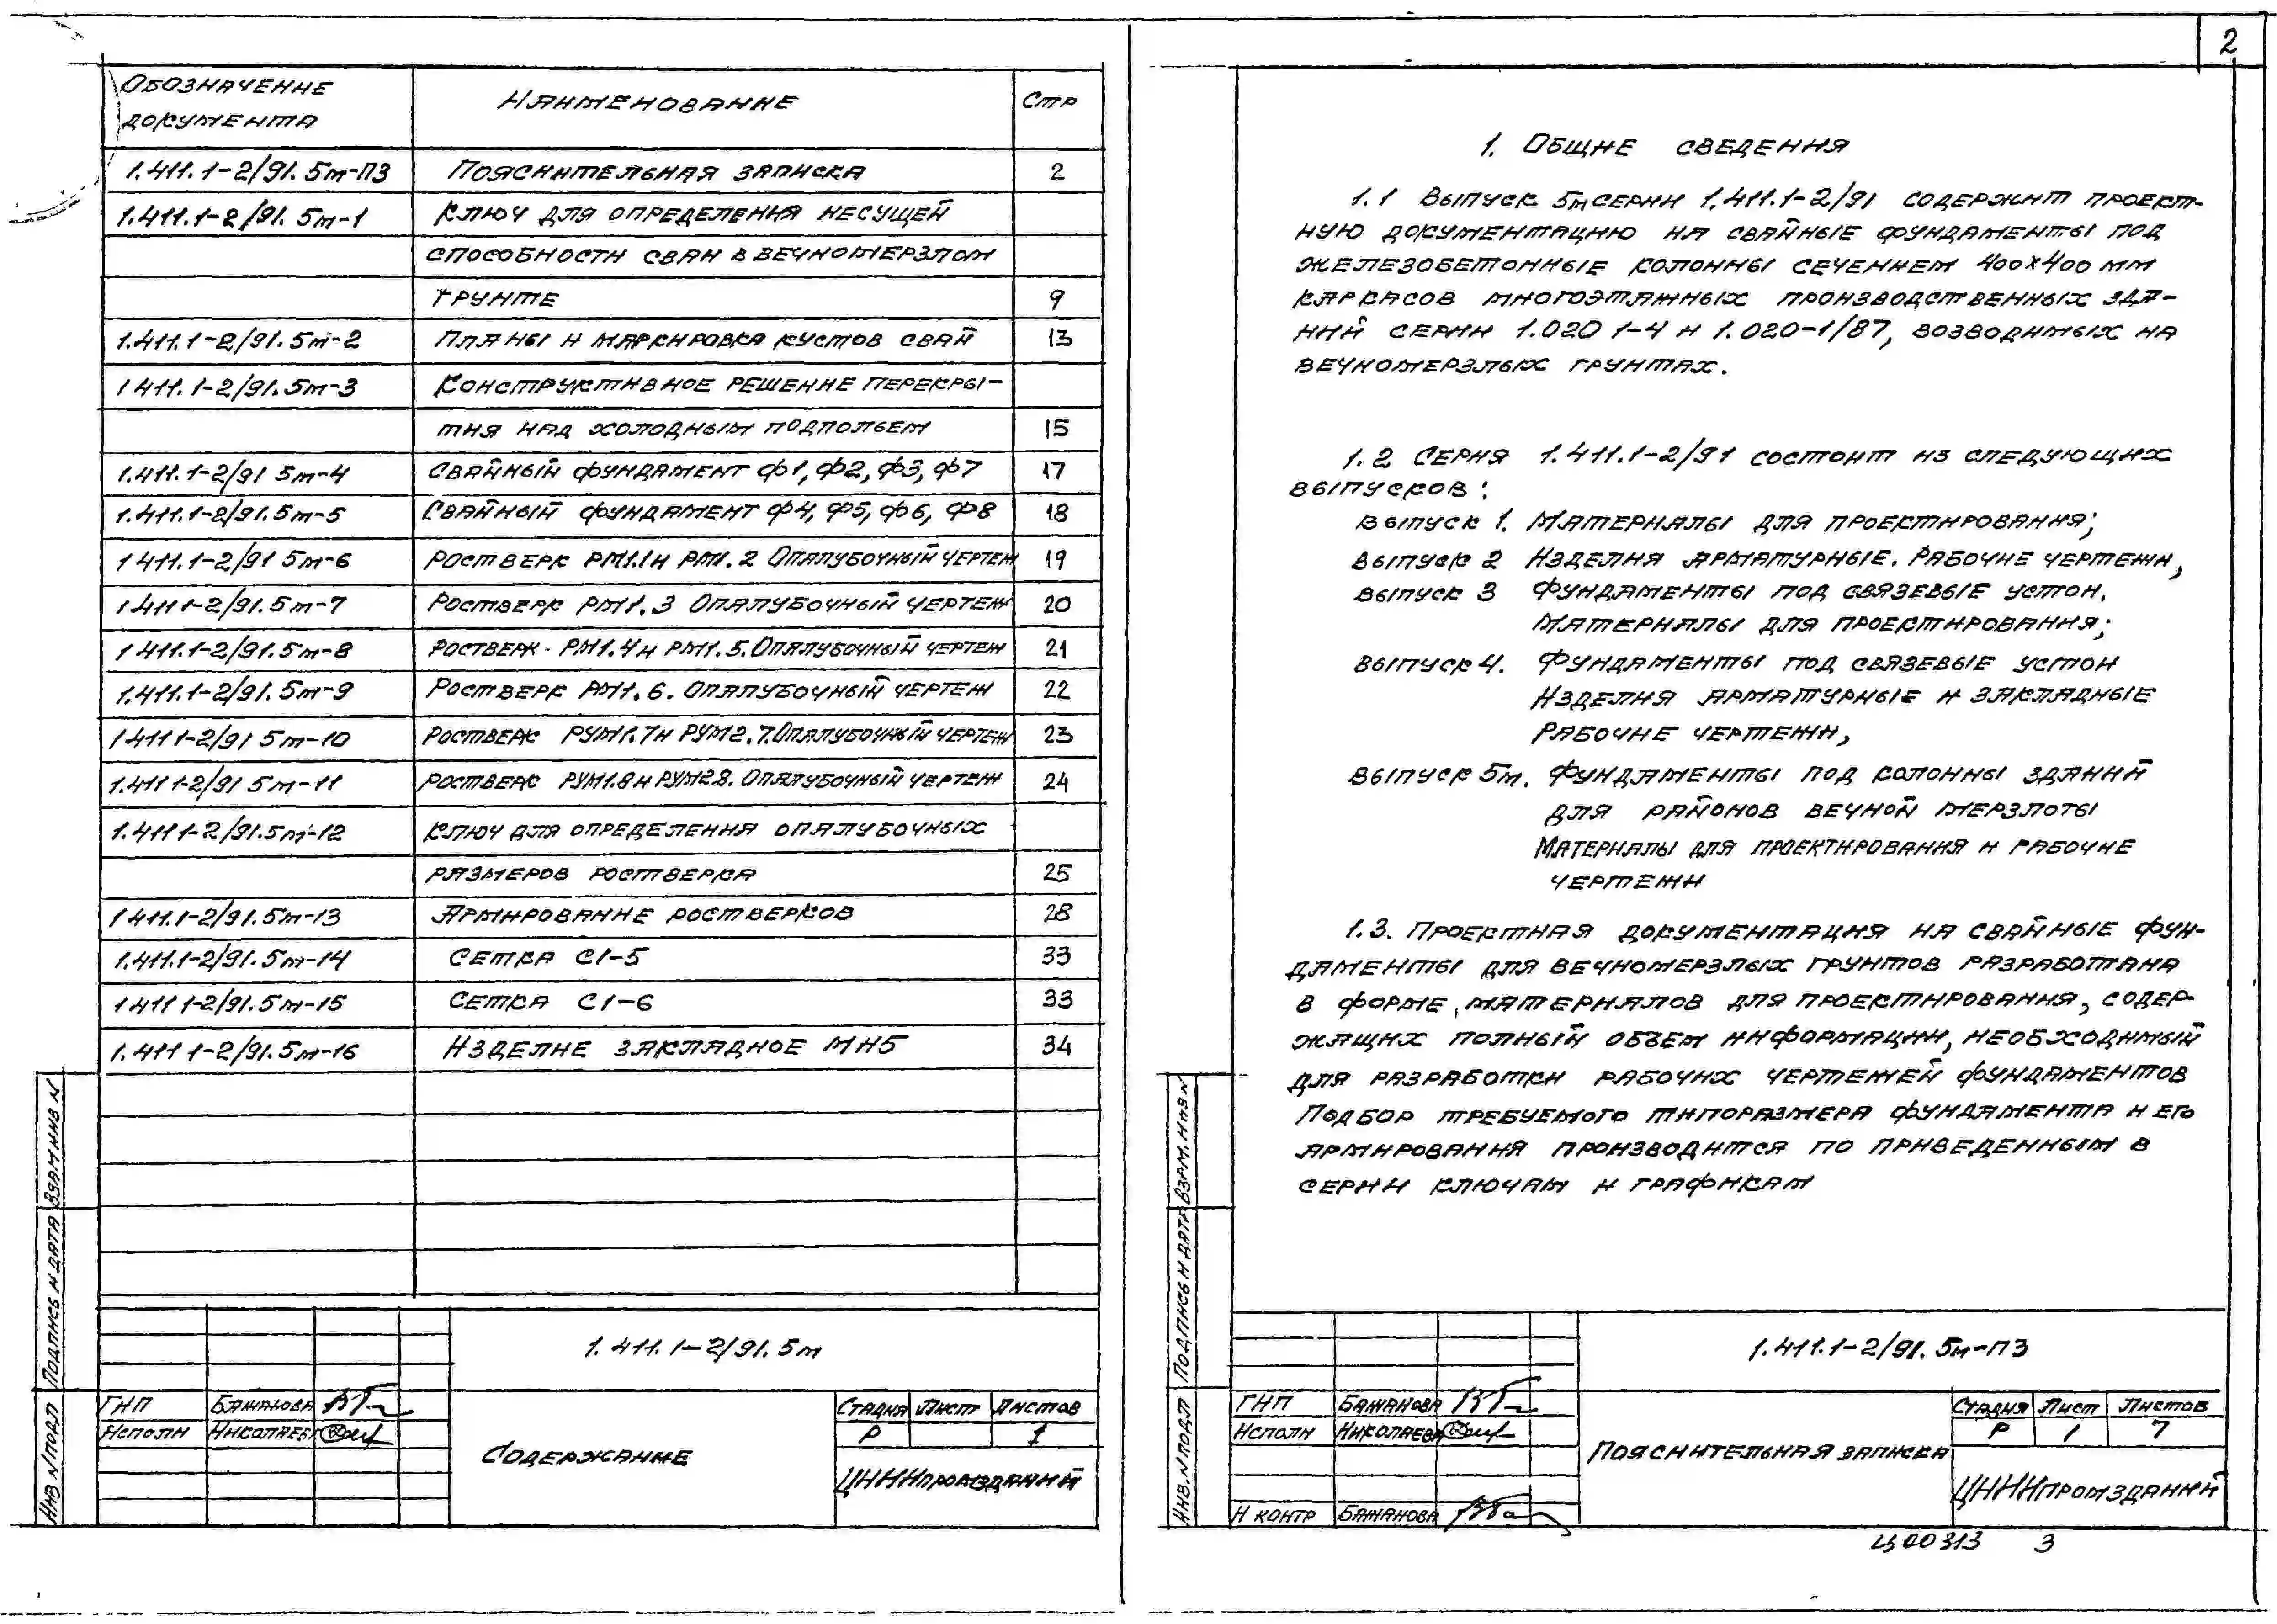 Обозначение документа Наименование Стр
1.411.1-2/91.5м-ПЗ Пояснительная записка 2
1.411.1-2/91.5м-1 Ключ для определения несущей
способности сваи в вечномерзлом
грунте 9
1.411.1-2/91.5м-2 Планы и маркировка кустов свай 13
1 411.1-2/91.5м-3 Конструктивное решение перекры-
тия над холодным подпольем 15
1.411.1-2/91 5м-4 Свайный фундамент Ф1, Ф2, Ф3, Ф7 17
1.411.1-2/91.5м-5 Свайный фундамент Ф4, Ф5, Ф6, Ф8 18
1 411.1-2/91 5м-6 Ростверк РМ1.1 и РМ1.2 Опалубочный чертеж 19
1 411 1-2/91.5м-7 Ростверк РМ1.3 Опалубочный чертеж 20
1 411.1-2/91.5м-8 Ростверк РМ1.4 и РМ1.5. Опалубочный чертеж 21
1.411.1-2/91.5м-9 Ростверк РМ1.6. Опалубочный чертеж 22
1 411 1-2/91 5м-10 Ростверк РУМ1.7 и РУМ2.7. Опалубочный чертеж 23
1.411 1-2/91 5м-11 Ростверк РУМ1.8 и РУМ2.8. Опалубочный чертеж 24
1.411 1-2/91.5м-12 Ключ для определения опалубочных
размеров ростверка 25
1 411.1-2/91.5м-13 Армирование ростверков 28
1.411.1-2/91.5м-14 Сетка С1-5 33
1 411 1-2/91.5м-15 Сетка С1-6 33
1.411 1-2/91.5м-16 Изделие закладное МН5 34
Взам инв N
Подпись и дата
Инв N подл
1.411.1-2/91.5м
ГИП Бажанова
Исполн Николаева
Содержание
Стадия Лист Листов
Р 1
ЦНИИпромзданий
2
1. Общие сведения
1.1 Выпуск 5м серии 1.411.1-2/91 содержит проект-
ную документацию на свайные фундаменты под
железобетонные колонны сечением 400х400 мм
каркасов многоэтажных производственных зда-
ний серии 1.020 1-4 и 1.020-1/87, возводимых на
вечномерзлых грунтах.
1.2 Серия 1.411.1-2/91 состоит из следующих
выпусков:
Выпуск 1. Материалы для проектирования;
Выпуск 2 Изделия арматурные. Рабочие чертежи,
Выпуск 3 Фундаменты под связевые устои.
Материалы для проектирования;
Выпуск 4. Фундаменты под связевые устои
Изделия арматурные и закладные
Рабочие чертежи,
Выпуск 5м. Фундаменты под колонны зданий
для районов вечной мерзлоты
Материалы для проектирования и рабочие
чертежи
1.3. Проектная документация на свайные фун-
даменты для вечномерзлых грунтов разработана
в форме материалов для проектирования, содер-
жащих полный объем информации, необходимый
для разработки рабочих чертежей фундаментов
Подбор требуемого типоразмера фундамента и его
армирования производится по приведенным в
серии ключам и графикам
Взам. инв N
Подпись и дата
Инв. N подл
1.411.1-2/91.5м-ПЗ
ГИП Бажанова
Исполн Николаева
Н контр Бажанова
Пояснительная записка
Стадия Лист Листов
Р 1 7
ЦНИИпромзданий
Ц00313 3